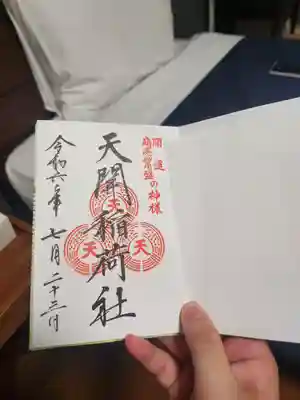 開運
商売繁盛
の神様
天開稲荷社
天
天
天
令和六年 七月二十三日